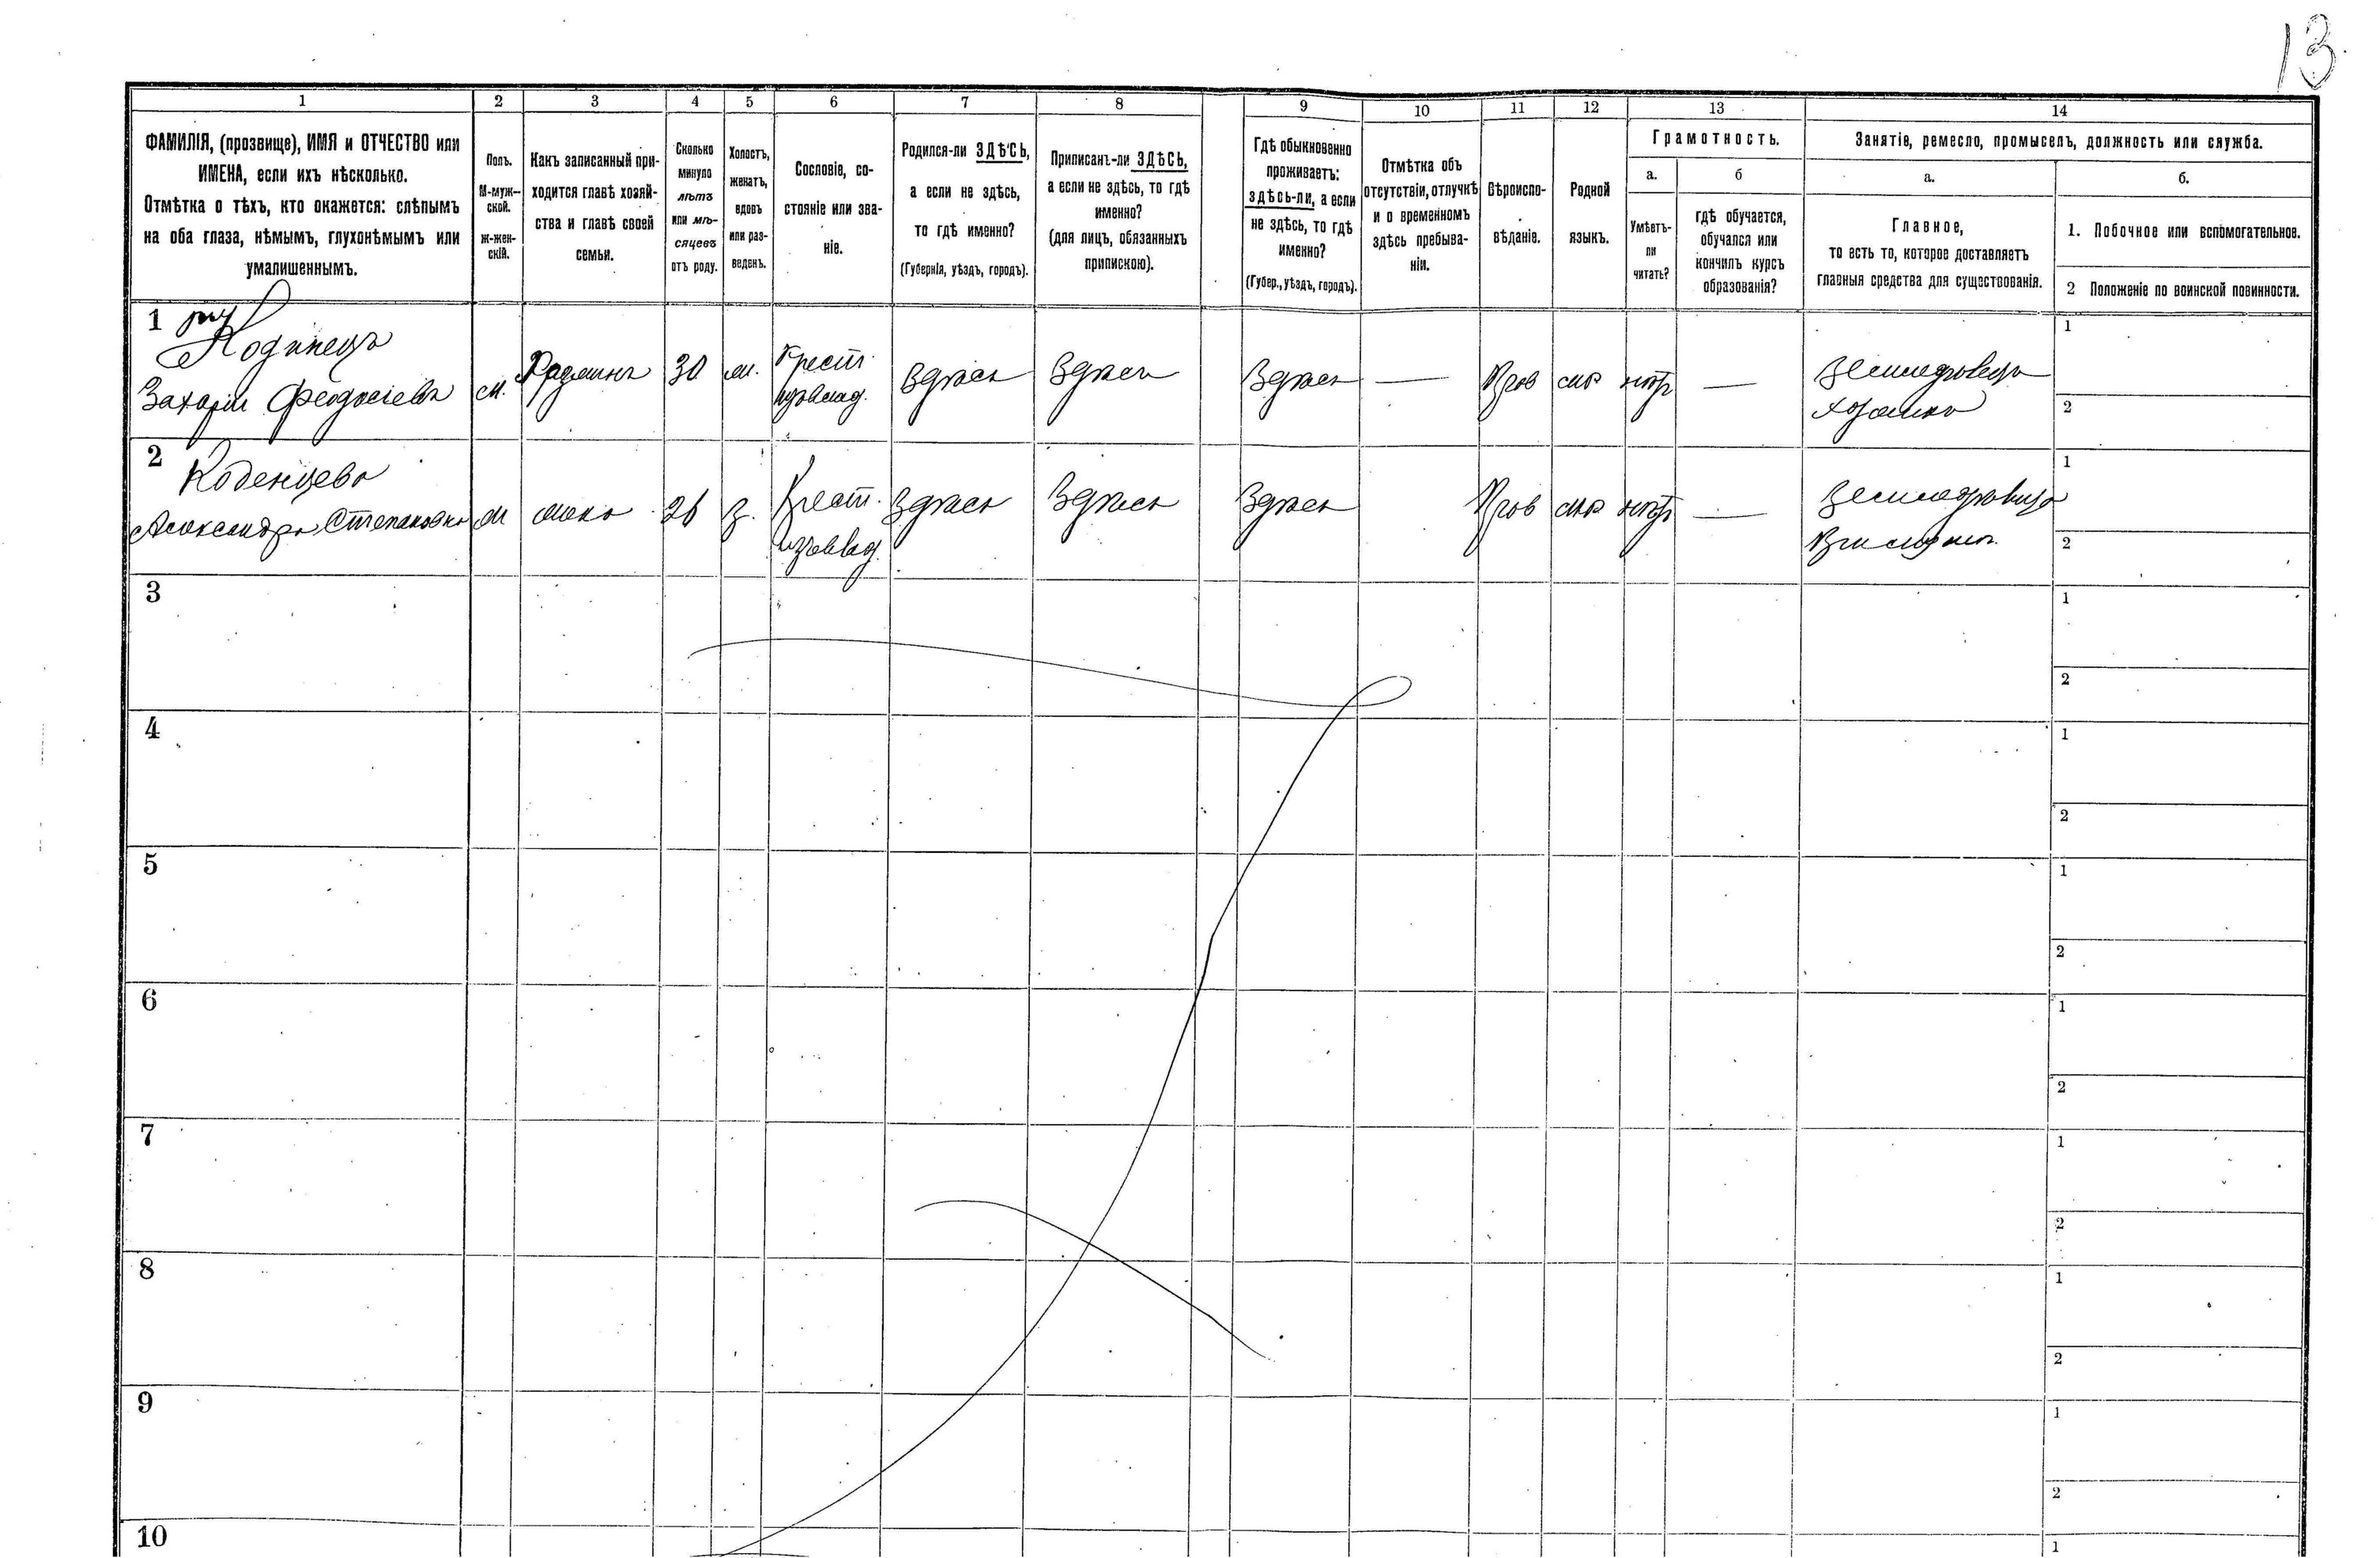 13
1 2 3 4 5 6 7 8 9 10 11 12 13 14
ФАМИЛІЯ, (прозвище), ИМЯ и ОТЧЕСТВО или
ИМЕНА, если ихъ нѣсколько.
Отмѣтка о тѣхъ, кто окажется: слѣпымъ
на оба глаза, нѣмымъ, глухонѣмымъ или
умалишеннымъ.
Полъ.
М-муж-
ской.
ж-жен-
скій.
Какъ записанный при-
ходится главѣ хозяй-
ства и главѣ своей
семьи.
Сколько
минуло
лѣтъ
или мѣ-
сяцевъ
отъ роду.
Холостъ,
женатъ,
вдовъ
или раз-
веденъ.
Сословіе, со-
стояніе или зва-
ніе.
Родился-ли ЗДѢСЬ,
а если не здѣсь,
то гдѣ именно?
(Губернія, уѣздъ, городъ).
Приписанъ-ли ЗДѢСЬ,
а если не здѣсь, то гдѣ
именно?
(для лицъ, обязанныхъ
припискою).
Гдѣ обыкновенно
проживаетъ:
ЗДѢСЬ-ЛИ, а если
не здѣсь, то гдѣ
именно?
(Губер., уѣздъ, городъ).
Отмѣтка объ
отсутствіи, отлучкѣ
и о временномъ
здѣсь пребыва-
ніи.
Вѣроиспо-
вѣданіе.
Родной
языкъ.
Грамотность.
а.
Умѣетъ-
ли
читать?
б
гдѣ обучается,
обучался или
кончилъ курсъ
образованія?
Занятіе, ремесло, промыселъ, должность или служба.
а.
Главное,
то есть то, которое доставляетъ
главныя средства для существованія.
б.
1. Побочное или вспомогательное.
2 Положеніе по воинской повинности.
1
Захарій Феодосіевъ
м. 30
Крест
Здѣсь Здѣсь Здѣсь — Прав нѣтъ —
Земледѣлецъ
хозяинъ
1
2
2
Коденцева
Александра Степановна
жена 26 з.
Крест.
Здѣсь Здѣсь Здѣсь Прав нѣтъ —
1
2
3
1
2
4
1
2
5
1
2
6
1
2
7
1
2
8
1
2
9
1
2
10
1